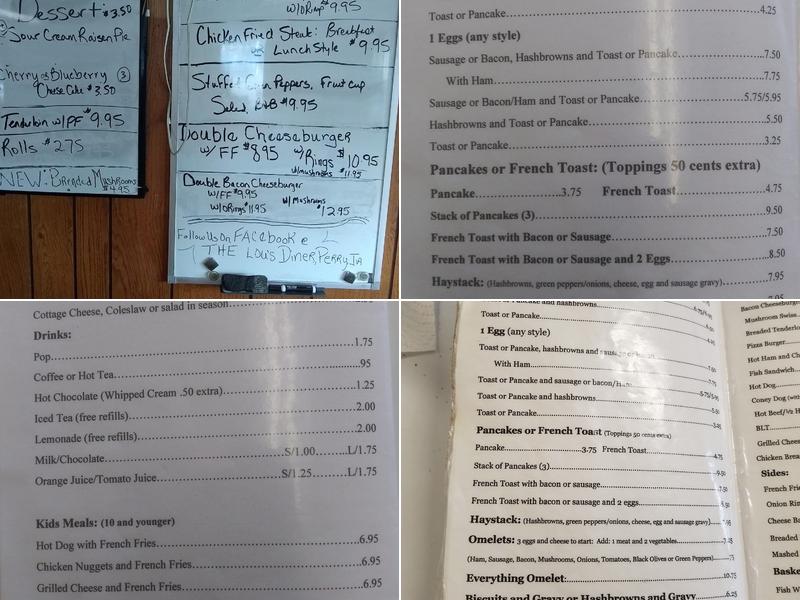 Dessert $3.50
Sour Cream Raisen Pie
Cherry or Blueberry ③
Cheese Cake $3.50
Tenderloin w/FF $9.95
Rolls $2.75
NEW: Breaded Mushrooms
$4.95
w/ORings $9.95
Chicken Fried Steak: Breakfast
or Lunch Style $9.95
Stuffed Green Peppers, Fruit cup
Salad, B&B $9.95
Double Cheeseburger
w/ FF $8.95 w/Rings $10.95
w/mushrooms $11.95
Double Bacon Cheeseburger
w/FF $9.95 w/Mushrooms
w/ORings $11.95 $12.95
Follow Us On FACEbook @
THE LOU's Diner, Perry, IA
Toast or Pancake 4.25
1 Eggs (any style)
Sausage or Bacon, Hashbrowns and Toast or Pancake 7.50
With Ham 7.75
Sausage or Bacon/Ham and Toast or Pancake 5.75/5.95
Hashbrowns and Toast or Pancake 5.50
Toast or Pancake 3.25
Pancakes or French Toast: (Toppings 50 cents extra)
Pancake 3.75 French Toast 4.75
Stack of Pancakes (3) 9.50
French Toast with Bacon or Sausage 7.50
French Toast with Bacon or Sausage and 2 Eggs 8.50
Haystack: (Hashbrowns, green peppers/onions, cheese, egg and sausage gravy) 7.95
7.95
Cottage Cheese, Coleslaw or salad in season
Drinks:
Pop 1.75
Coffee or Hot Tea .95
Hot Chocolate (Whipped Cream .50 extra) 1.25
Iced Tea (free refills) 2.00
Lemonade (free refills) 2.00
Milk/Chocolate S/1.00 L/1.75
Orange Juice/Tomato Juice S/1.25 L/1.75
Kids Meals: (10 and younger)
Hot Dog with French Fries 6.95
Chicken Nuggets and French Fries 6.95
Grilled Cheese and French Fries 6.95
and hashbrowns
Toast or Pancake
1 Egg (any style)
Toast or Pancake, hashbrowns and sausage or bacon
With Ham
Toast or Pancake and sausage or bacon/Ham
Toast or Pancake and hashbrowns 5.75/5.95
Toast or Pancake
Pancakes or French Toast (Toppings 50 cents extra)
Pancake 3.75 French Toast 4.75
Stack of Pancakes (3) 9.50
French Toast with bacon or sausage 7.50
French Toast with bacon or sausage and 2 eggs 8.50
Haystack: (Hashbrowns, green peppers/onions, cheese, egg and sausage gravy)
Omelets: 3 eggs and cheese to start: Add: 1 meat and 2 vegetables
(Ham, Sausage, Bacon, Mushrooms, Onions, Tomatoes, Black Olives or Green Peppers)
Everything Omelet: 10.75
Biscuits and Gravy or Hashbrowns and Gravy 6.25
Bacon Cheeseburger
Mushroom Swiss
Breaded Tenderloin
Pizza Burger
Hot Ham and
Fish Sandwich
Hot Dog
Coney Dog
Hot Beef/
BLT
Grilled Cheese
Chicken
Sides:
French Fries
Onion
Cheese
Breaded
Mashed
Fish